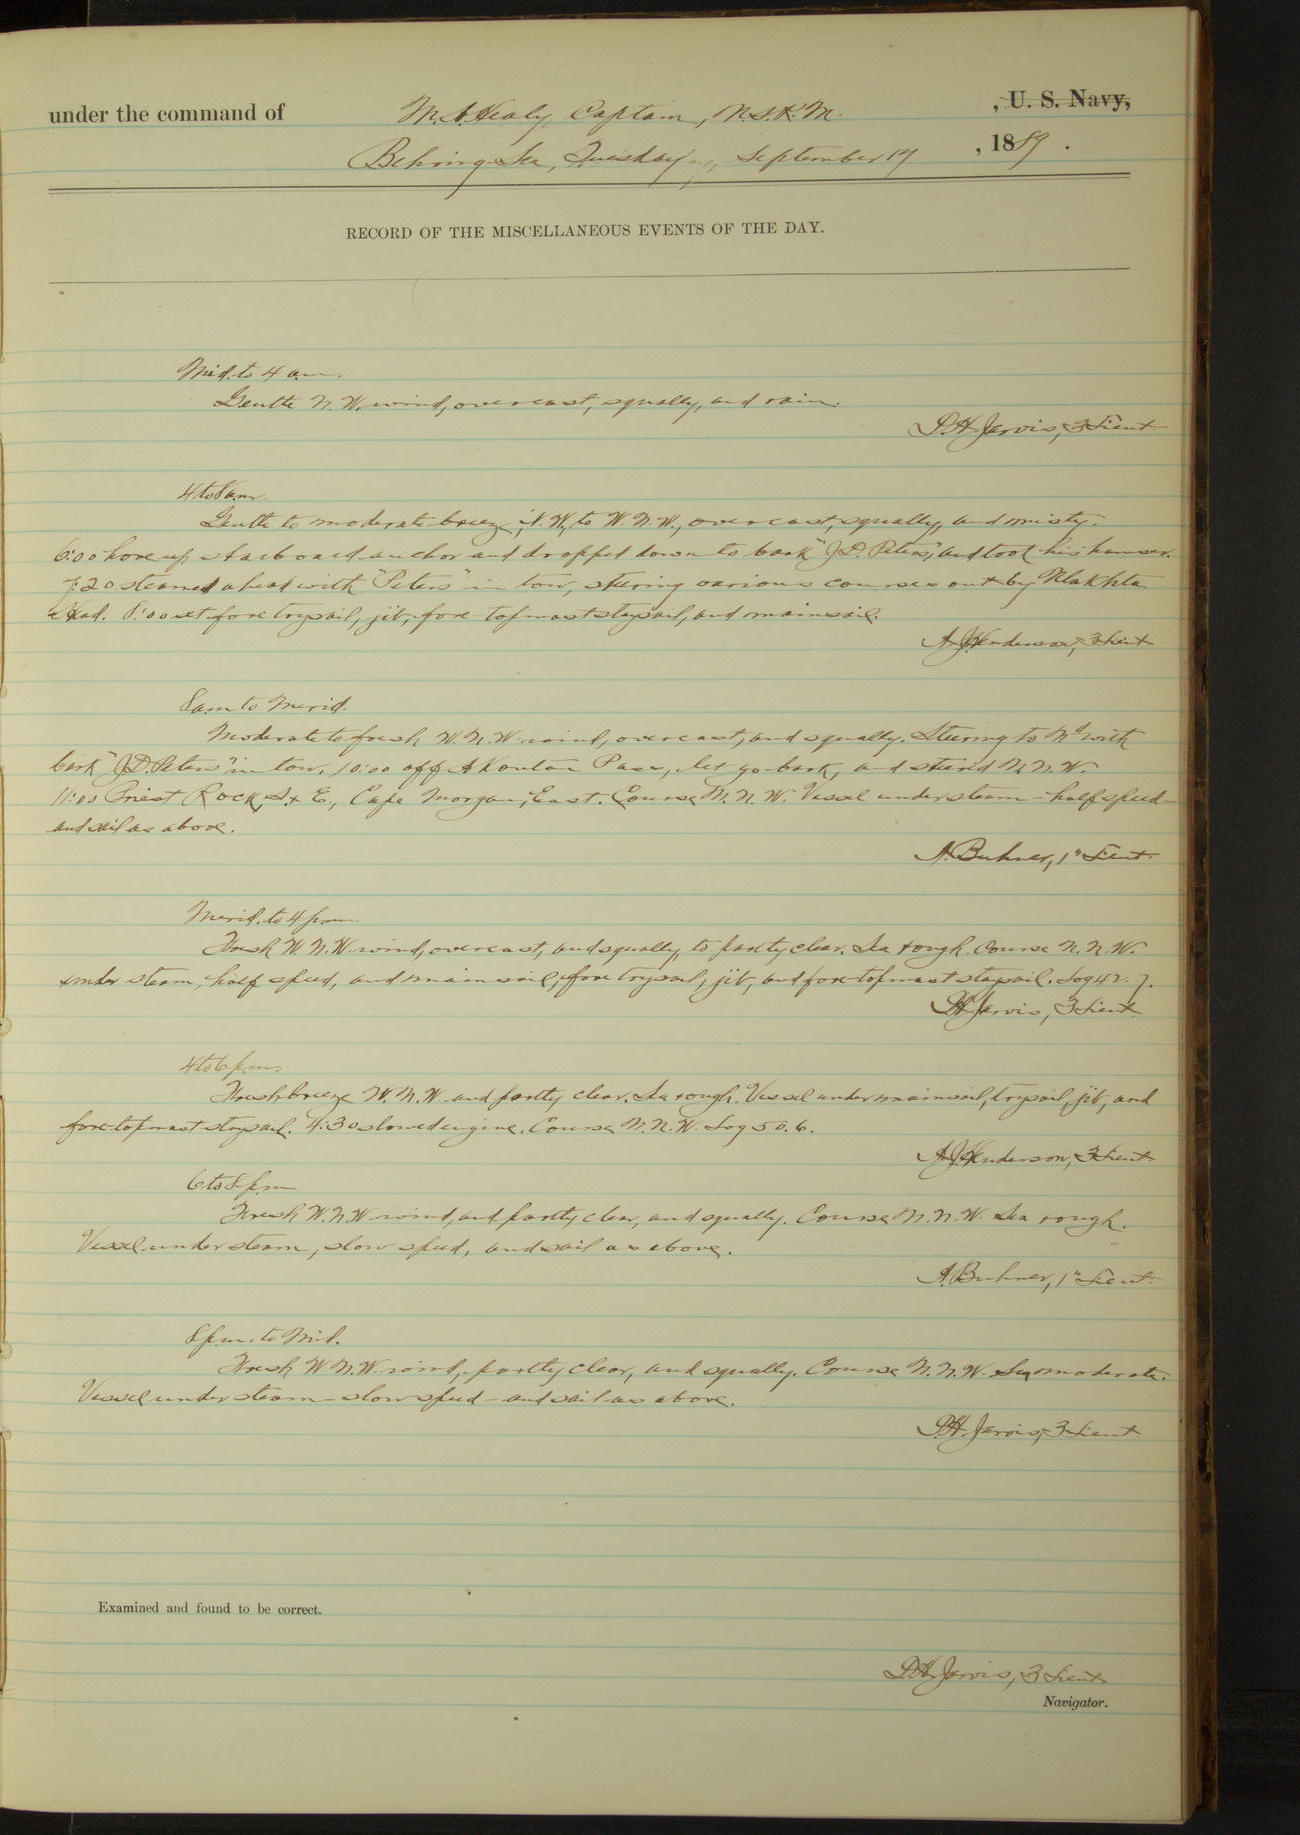 under the command of M. A. Healy, Captain, U.S.R.M. , U. S. Navy,
Behring Sea, Tuesday, September 17 , 1889 .
RECORD OF THE MISCELLANEOUS EVENTS OF THE DAY.
Mid. to 4 am.
Gentle N.W. wind, overcast, squally, and rain.
D.H. Jarvis, 3 Lieut
4 to 8 am.
Gentle to moderate breeze, N.W. to W.N.W., overcast, squally, and misty.
6:00 hove up starboard anchor and dropped down to bark "J.D. Peters," and took his hawser.
7:20 steamed ahead with "Peters" in tow, steering various courses out by Ulakhta
Head. 8:00 set fore trysail, jib, fore topmast staysail, and mainsail.
A.J. Henderson, 3 Lieut
8 am to Merid.
Moderate to fresh W.N.W. wind, overcast, and squally. Steering to Nd with
bark "J.D. Peters" in tow. 10:00 off Akoutan Pass, let go bark, and steered N.N.W.
11:00 Priest Rock, S. x E., Cape Morgan, East. Course N.N.W. Vessel under steam - half speed -
and sail as above.
A. Buhner, 1" Lieut.
Merid. to 4 pm.
Fresh W.N.W. wind, overcast, and squally, to partly clear. Sea rough. Course N.N.W.
under steam, half speed, and mainsail, fore trysail, jib, and fore-topmast staysail. Log 42.7.
D.H. Jarvis, 3 Lieut
4 to 6 pm.
Fresh breeze W.N.W. and partly clear. Sea rough. Vessel under mainsail, trysail, jib, and
fore-topmast staysail. 4:30 slowed engine. Course N.N.W. Log 50.6.
A.J. Henderson, 3 Lieut
6 to 8 pm
Fresh W.N.W. wind, and partly clear, and squally. Course N.N.W. Sea rough.
Vessel under steam, slow speed, and sail as above.
A. Buhner, 1" Lieut.
8 pm. to Mid.
Fresh W.N.W. wind, partly clear, and squally. Course N.N.W. Sea moderate.
Vessel under steam - slow speed - and sail as above.
D.H. Jarvis, 3 Lieut
Examined and found to be correct.
D.H. Jarvis, 3 Lieut
Navigator.